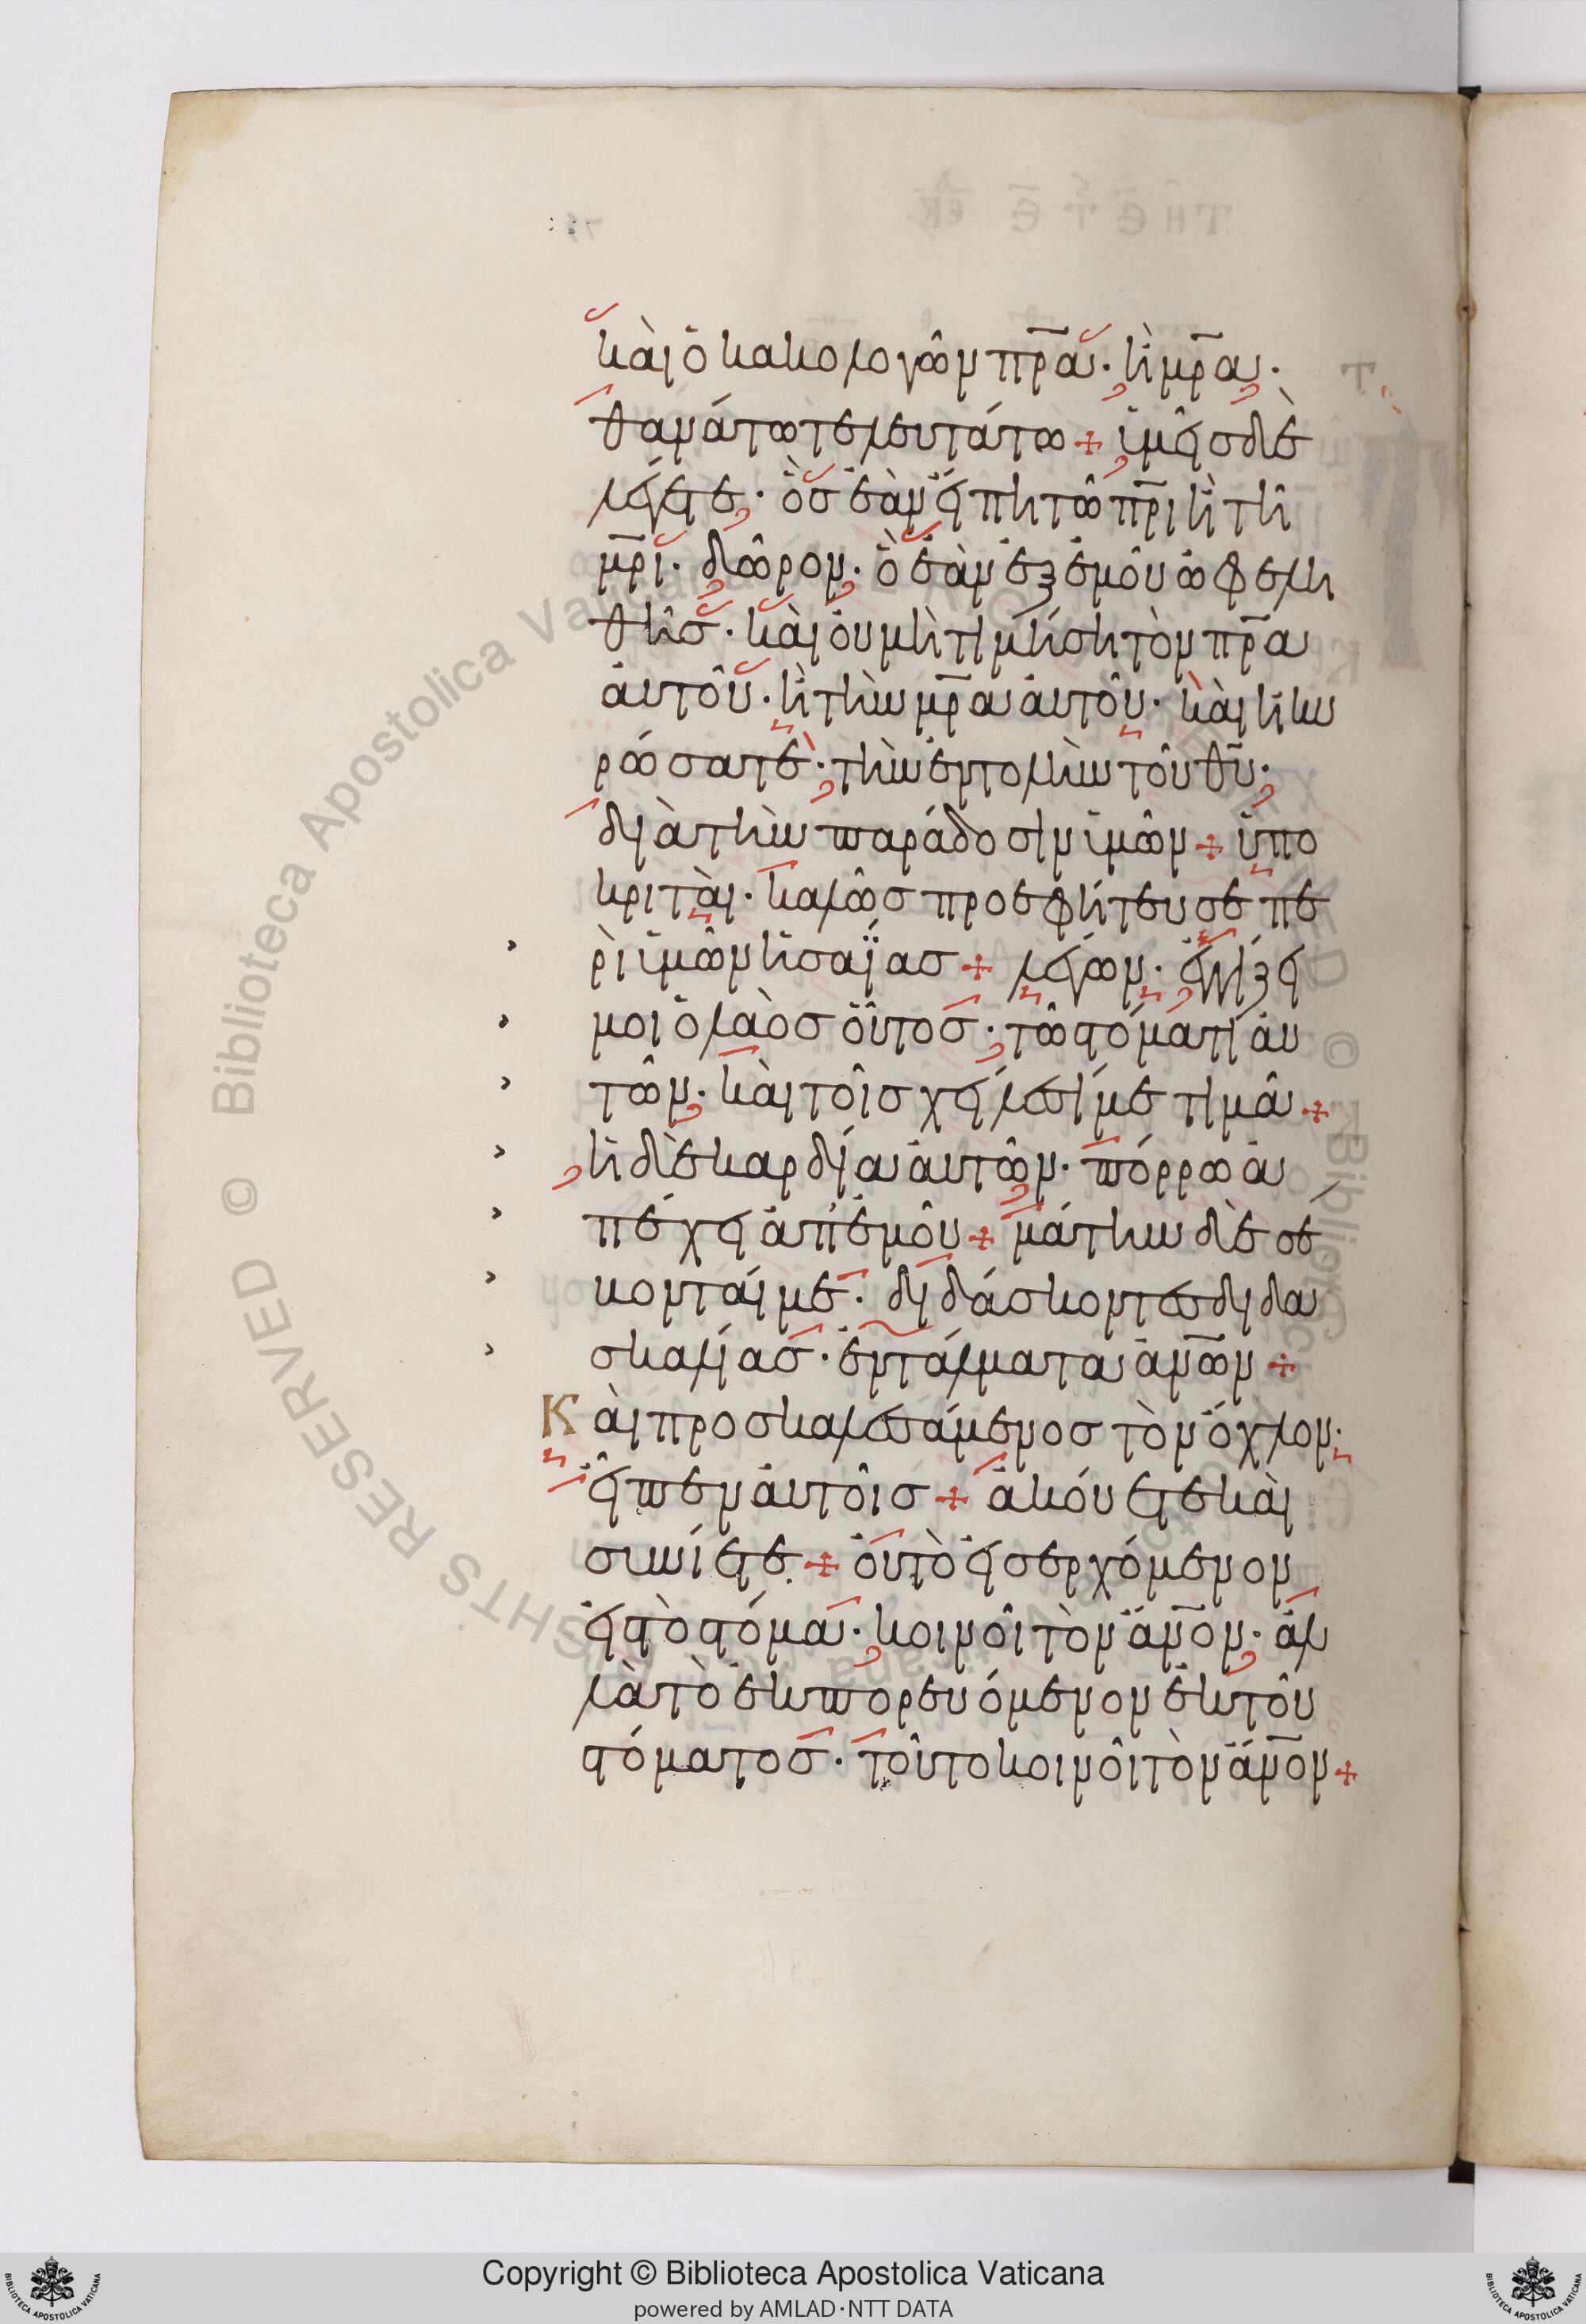 καὶ ὁ κακολογῶν πρ̅α· ἢ μρ̅α·
θανάτω τελευτάτω + ὑμεῖς δὲ
λέγετε· ὃς ἐὰν εἴπη τῶ πρ̅ι ἢ τῆ
μρ̅ι· δῶρον· ὃ ἐὰν ἐξ ἐμοῦ ὠφελη
θῆς· καὶ οὐ μὴ τιμήση τὸν πρ̅α
αὐτοῦ· ἢ τὴν μρ̅α αὐτοῦ· καὶ ἠκυ
ρώσατε· τὴν ἐντολὴν τοῦ θυ̅·
διὰ τὴν παράδοσιν ὑμῶν + ὑπο
κριταὶ· καλῶς προεφήτευσε πε
ρὶ ὑμῶν ἡσαΐας + λέγων· ἐγγίζει
μοι ὁ λαὸς οὗτος· τῶ στόματι αὐ
τῶν· καὶ τοῖς χείλεσί με τιμᾶ +
ἡ δὲ καρδία αὐτῶν· πόρρω ἀ
πέχει ἀπ' ἐμοῦ + μάτην δὲ σέ
βονταί με· διδάσκοντες διδα
σκαλίας· ἐντάλματα ἀν̅ων +
Καὶ προσκαλεσάμενος τὸν ὄχλον·
εἶπεν αὐτοῖς + ἀκούετε καὶ
συνίετε + οὐ τὸ εἰσερχόμενον
εἰς τὸ στόμα· κοινοῖ τὸν ἄν̅ον· ἀλ
λὰ τὸ ἐκπορευόμενον ἐκ τοῦ
στόματος· τοῦτο κοινοῖ τὸν ἄν̅ον +
Copyright © Biblioteca Apostolica Vaticana
powered by AMLAD·NTT DATA